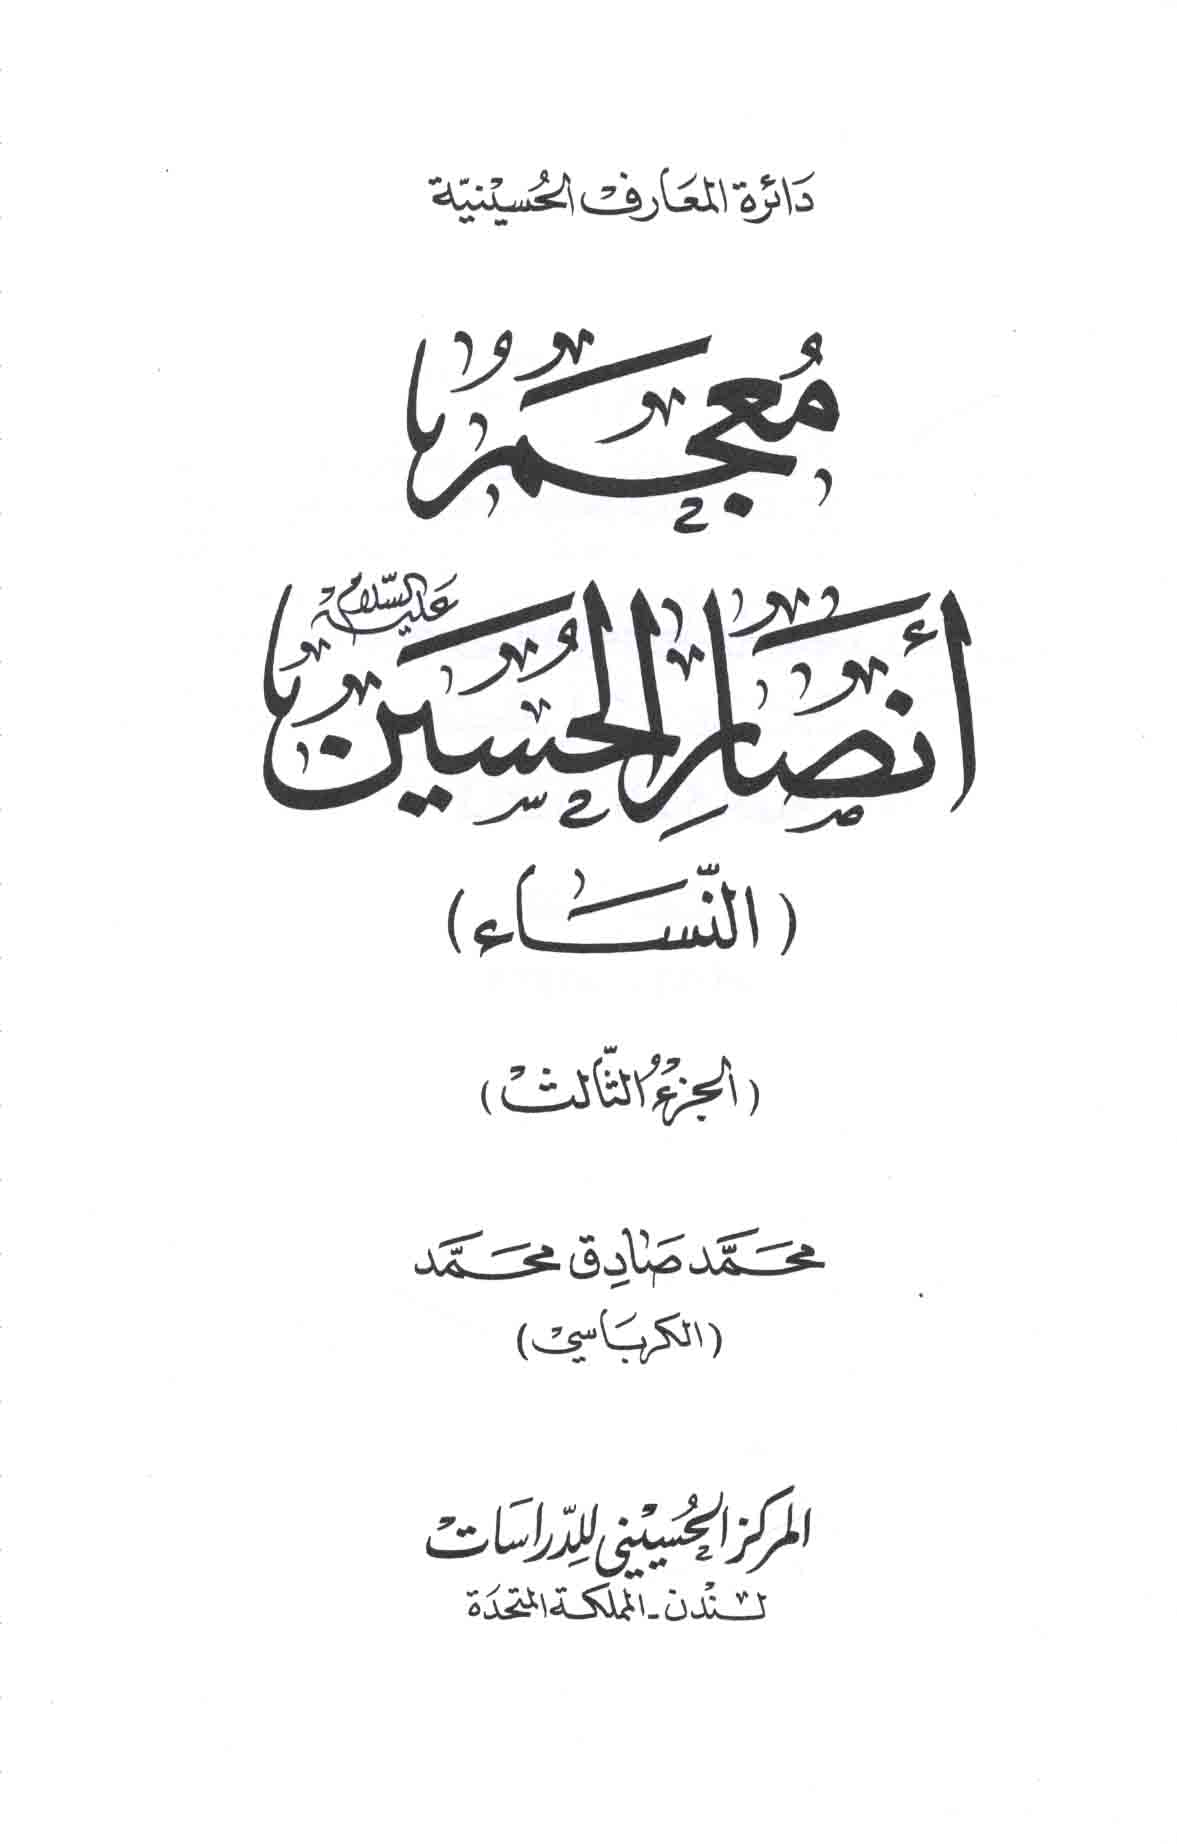 دَائرة المعَارف الحُسينيّة
مُعجم
أنصَارِ الحُسَين عليه السّلام
(النّسَاء)
(الجزءُ الثّالث)
محَمَّد صَادِق محَمَّد
(الكربَاسي)
المركز الحُسيني للِدّراسَات
لندْن - المملكة المتحدَة